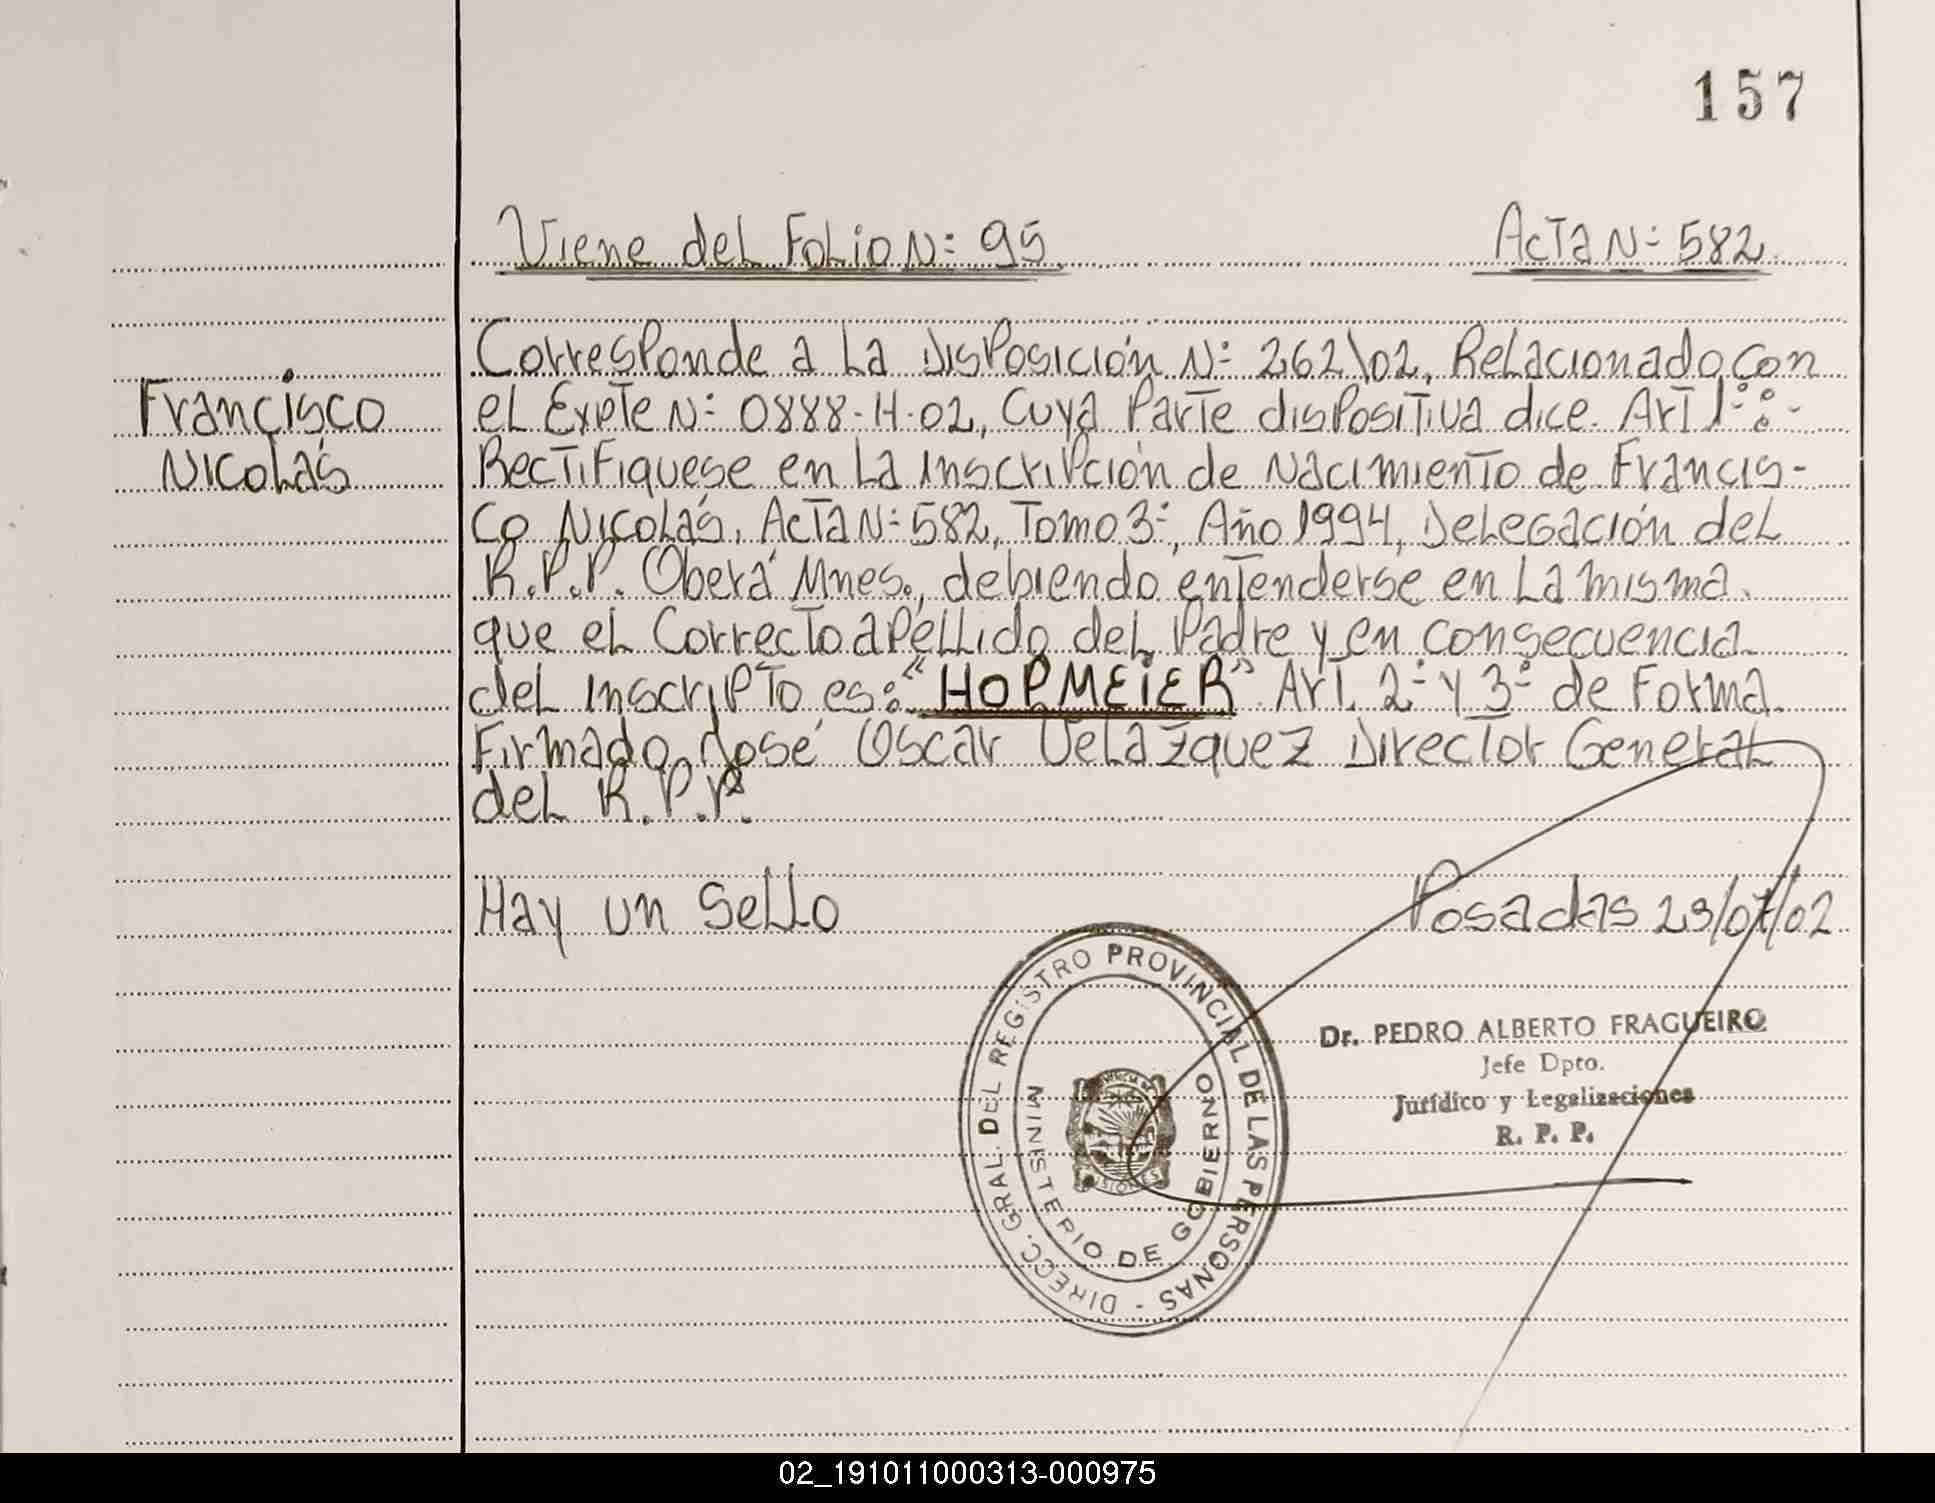 157
Viene del Folio N: 95. Acta N: 582.
Corresponde a la Disposición N: 262\02, Relacionado con
Francisco
el Expte N: 0888-H-02, Cuya Parte dispositiva dice. Art 1º:-
Nicolás
Rectifiquese en la Inscripción de Nacimiento de Francis-
co Nicolás, Acta N: 582, Tomo 3º, Año 1994, Delegación del
R.P.P. Oberá Mnes., debiendo entenderse en la misma.
que el Correcto apellido del Padre y en consecuencia
del inscripto es: "HOPMEiER" Art. 2º y 3º de Forma.
Firmado José Oscar Velazquez Director General
del R.P.P.
Hay un Sello Posadas 23/07/02.
DIRECC. GRAL. DEL REGISTRO PROVINCIAL DE LAS PERSONAS -
MINISTERIO DE GOBIERNO
Dr. PEDRO ALBERTO FRAGUEIRO
Jefe Dpto.
Jurídico y Legalizaciones
R. P. P.
02_191011000313-000975